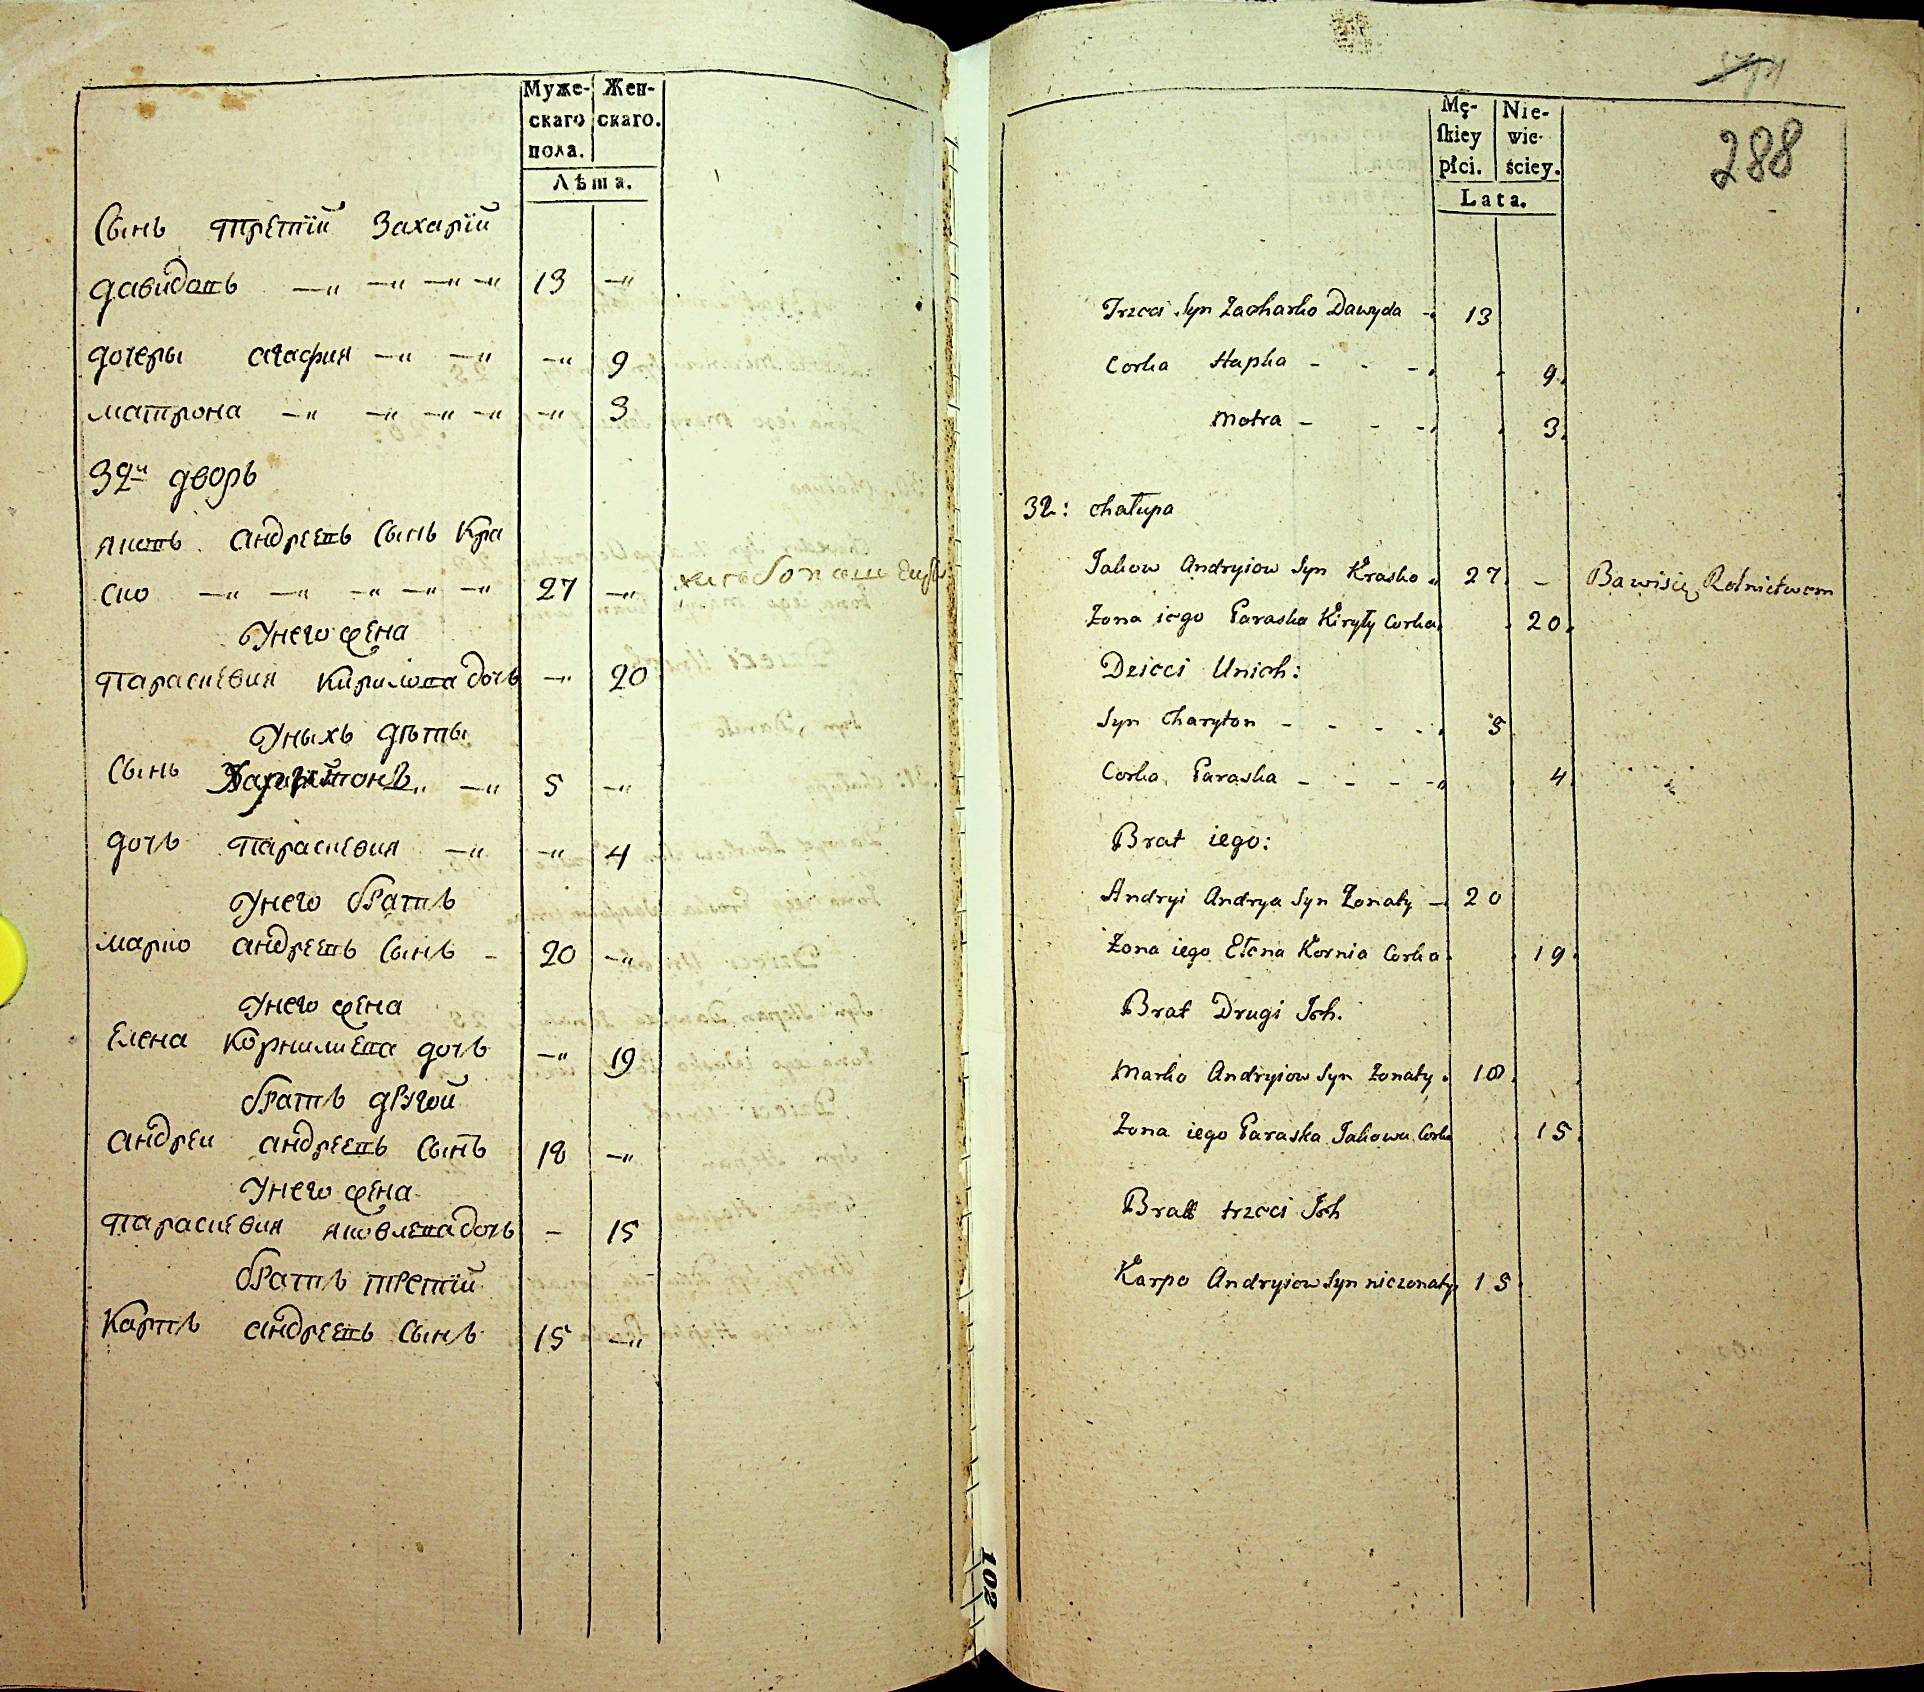 Муже-
скаго
пола.
Жен-
скаго.
Лѣта.
Сынъ третій Захарій
Давидовъ —„ —„ —„ —„ 13 —„
дочеры Агафия —„ —„ —„ 9
Матрона —„ —„ —„ —„ —„ 3
32й дворъ
Яковъ Андреевъ Сынъ Кра
ско —„ —„ —„ —„ —„ 27 —„
Унего жена
Параскевия Кирилова дочь —„ 20
Уныхъ дѣты
Сынъ Харитонъ —„ —„ 5 —„
дочь Параскевия —„ —„ 4
Унего братъ
Марко Андреевъ Сынъ – 20 —„
Унего жена
Елена Корнилиева дочь —„ 19
братъ другой
Андреи Андреевъ Сынъ 18 —„
Унего жена
Параскевия Яковлева дочь – 15
братъ третій
Карпъ Андреевъ Сынъ 15 —„
102
288
Mę-
ſkiey
płci.
Nie-
wie-
ściey.
Lata.
Trzeci Syn Zacharko Dawyda – 13
Corka Hapka – - -. . 9.
Motra – - -. . 3.
32: chałupa
Jakow Andryiow Syn Krasko „ 27. – Bawi się Rolnictwem
Żona iego Paraska Kiryły Corka. . 20.
Dzieci Unich:
Syn Charyton – - - -. 5
Corka Paraska – - - -„ . 4.
Brat iego:
Andryi Andrya Syn Żonaty – 20
Żona iego Ełena Kornia Corka. . 19.
Brat Drugi Ich.
Marko Andryiow Syn Żonaty. 18.
Żona iego Paraska Jakowa Corka . 15.
Brat trzeci Ich
Karpo Andryiow Syn nieżonaty 15.